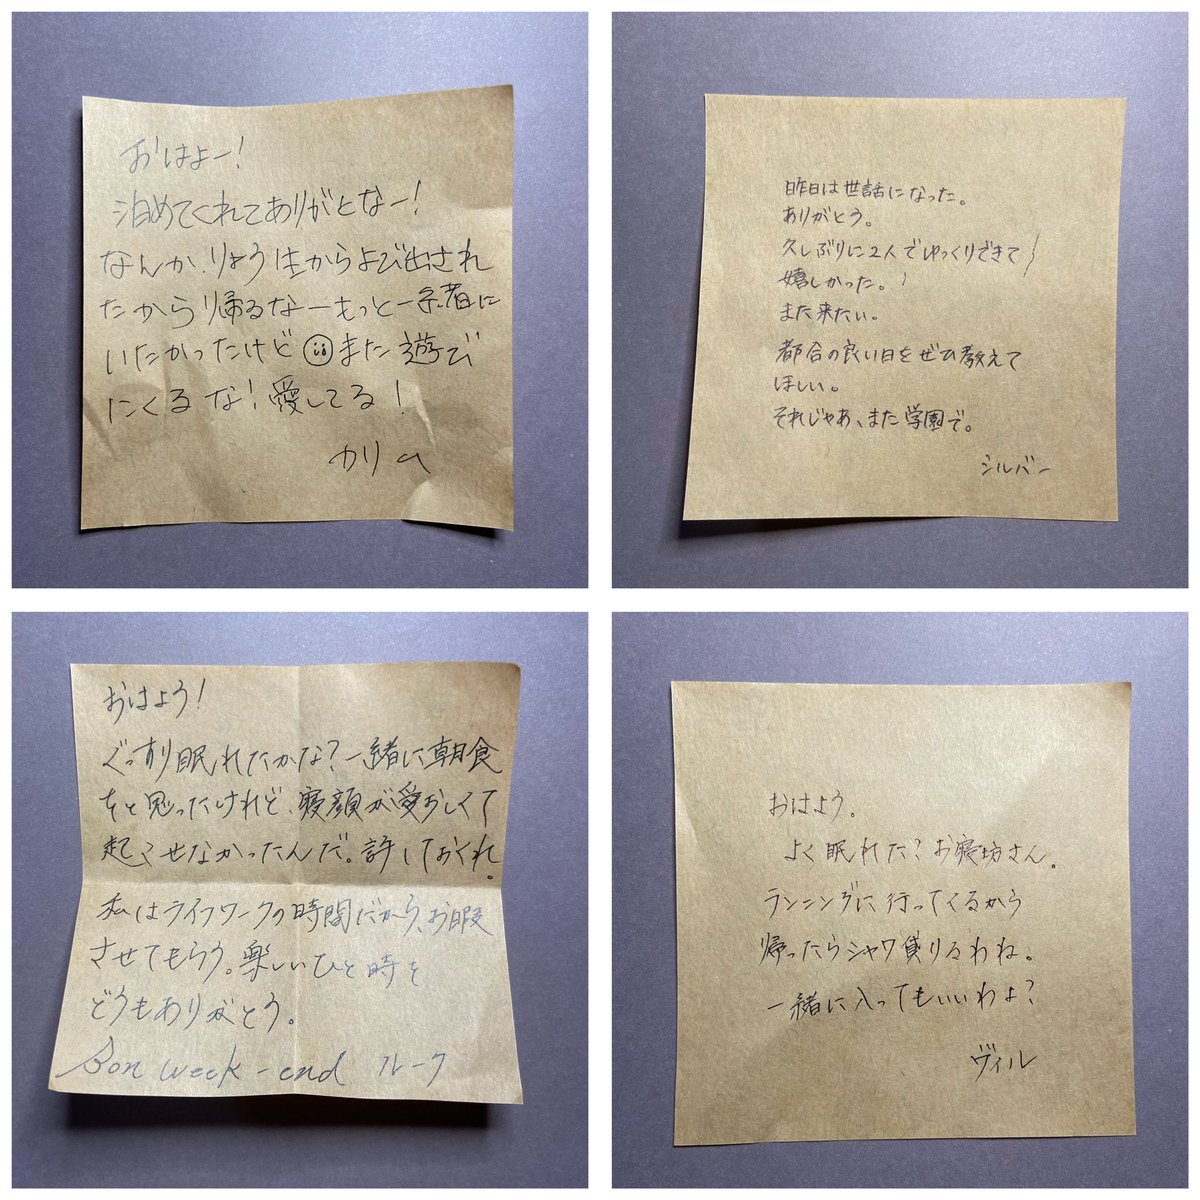 おはよー!
泊めてくれてありがとなー!
なんか、りょう生からよび出され
たから帰るなーもっと一緒に
いたかったけどまた遊び
にくるな!愛してる!
カリム
昨日は世話になった。
ありがとう。
久しぶりに2人でゆっくりできて
嬉しかった。
また来たい。
都合の良い日をぜひ教えて
ほしい。
それじゃあ、また学園で。
シルバー
おはよう!
ぐっすり眠れたかな?一緒に朝食
をと思ったけれど、寝顔が愛おしくて
起こせなかったんだ。許しておくれ。
私はライフワークの時間だから、お暇
させてもらう。楽しいひと時を
どうもありがとう。
Bon week-end ルーク
おはよう。
よく眠れた?お寝坊さん。
ランニングに行ってくるから
帰ったらシャワ貸りるわね。
一緒に入ってもいいわよ?
ヴィル